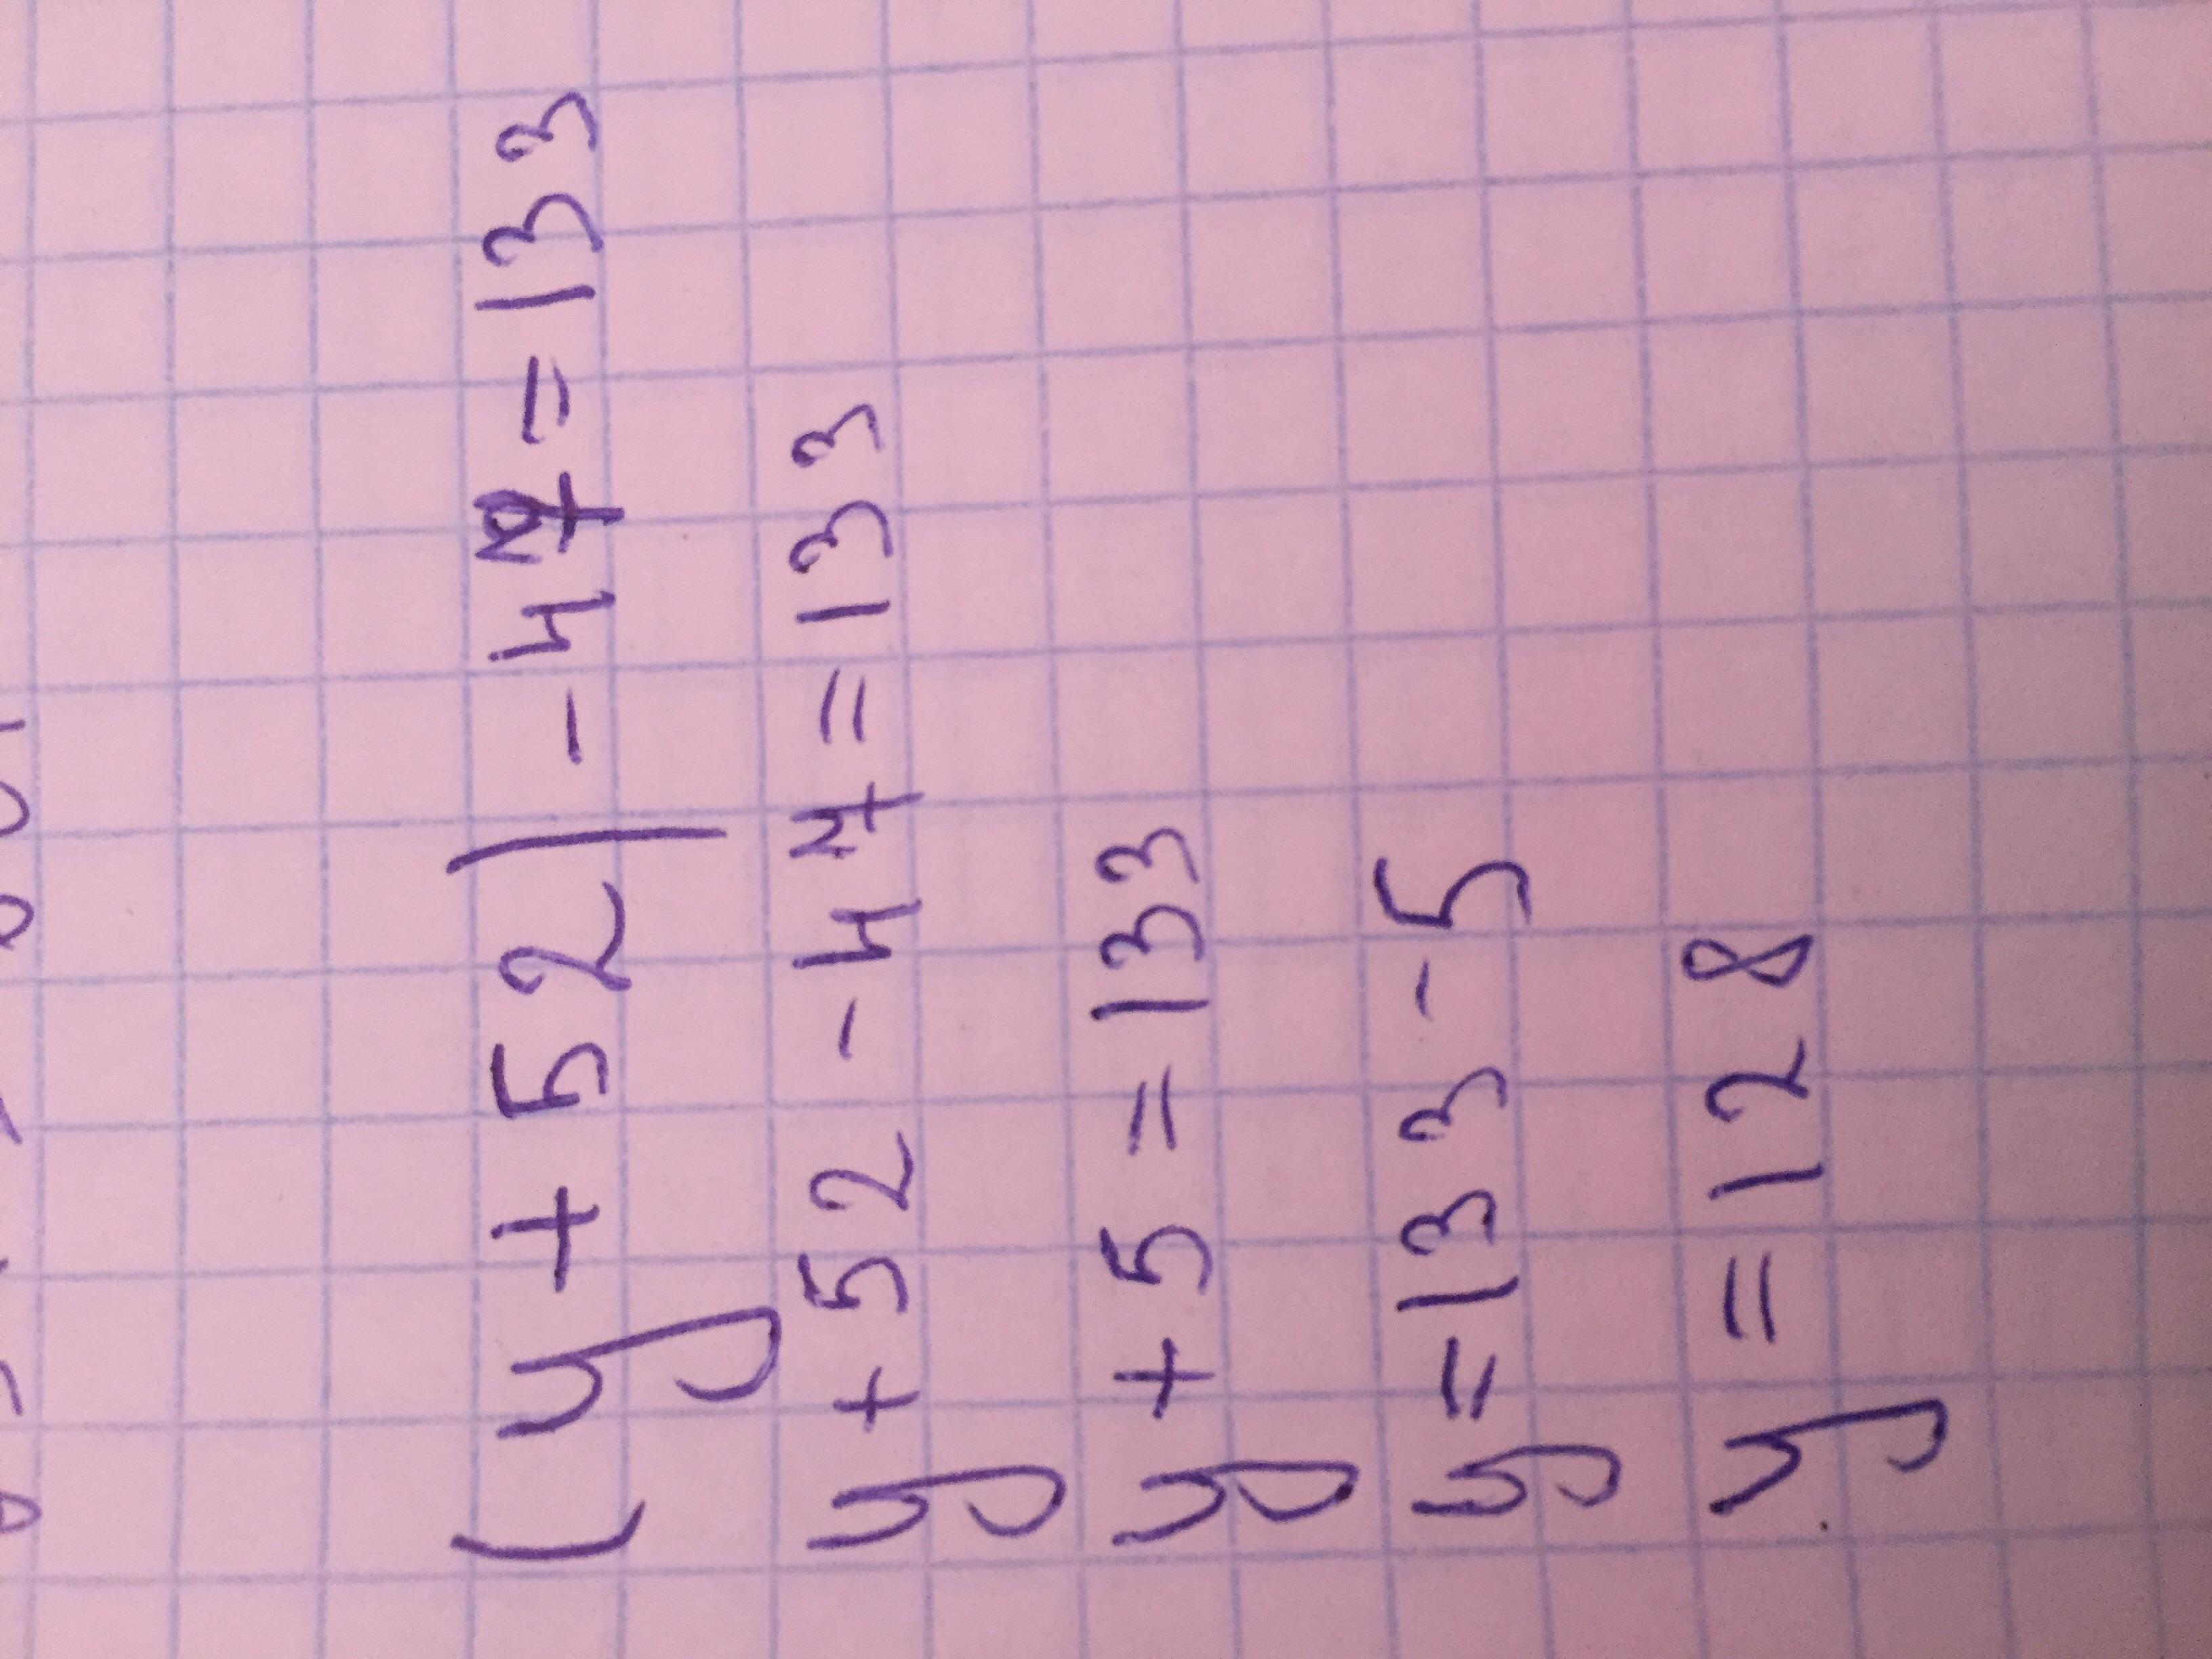 (y + 52) - 47 = 133
y + 52 - 47 = 133
y + 5 = 133
y = 133 - 5
y = 128